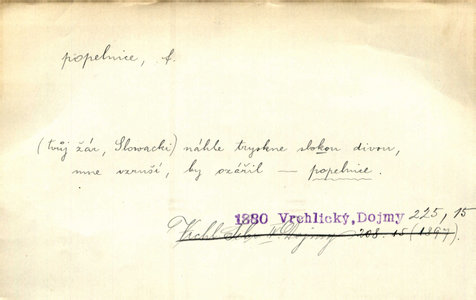 popelnice, f.
(tvůj žár, Slowacki) náhle tryskne slokou divou,
mne vzruší, by ozářil — popelnice.
1880 Vrchlický, Dojmy 225, 15
Vrchl. Dojmy 208. 15 (1897)